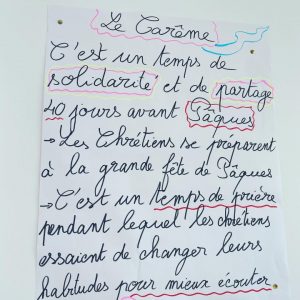 Le Carême
C'est un temps de
solidarité et de partage
40 jours avant Pâques
→ Les Chrétiens se préparent
à la grande fête de Pâques
→ C'est un temps de prière
pendant lequel les chrétiens
essaient de changer leurs
habitudes pour mieux écouter